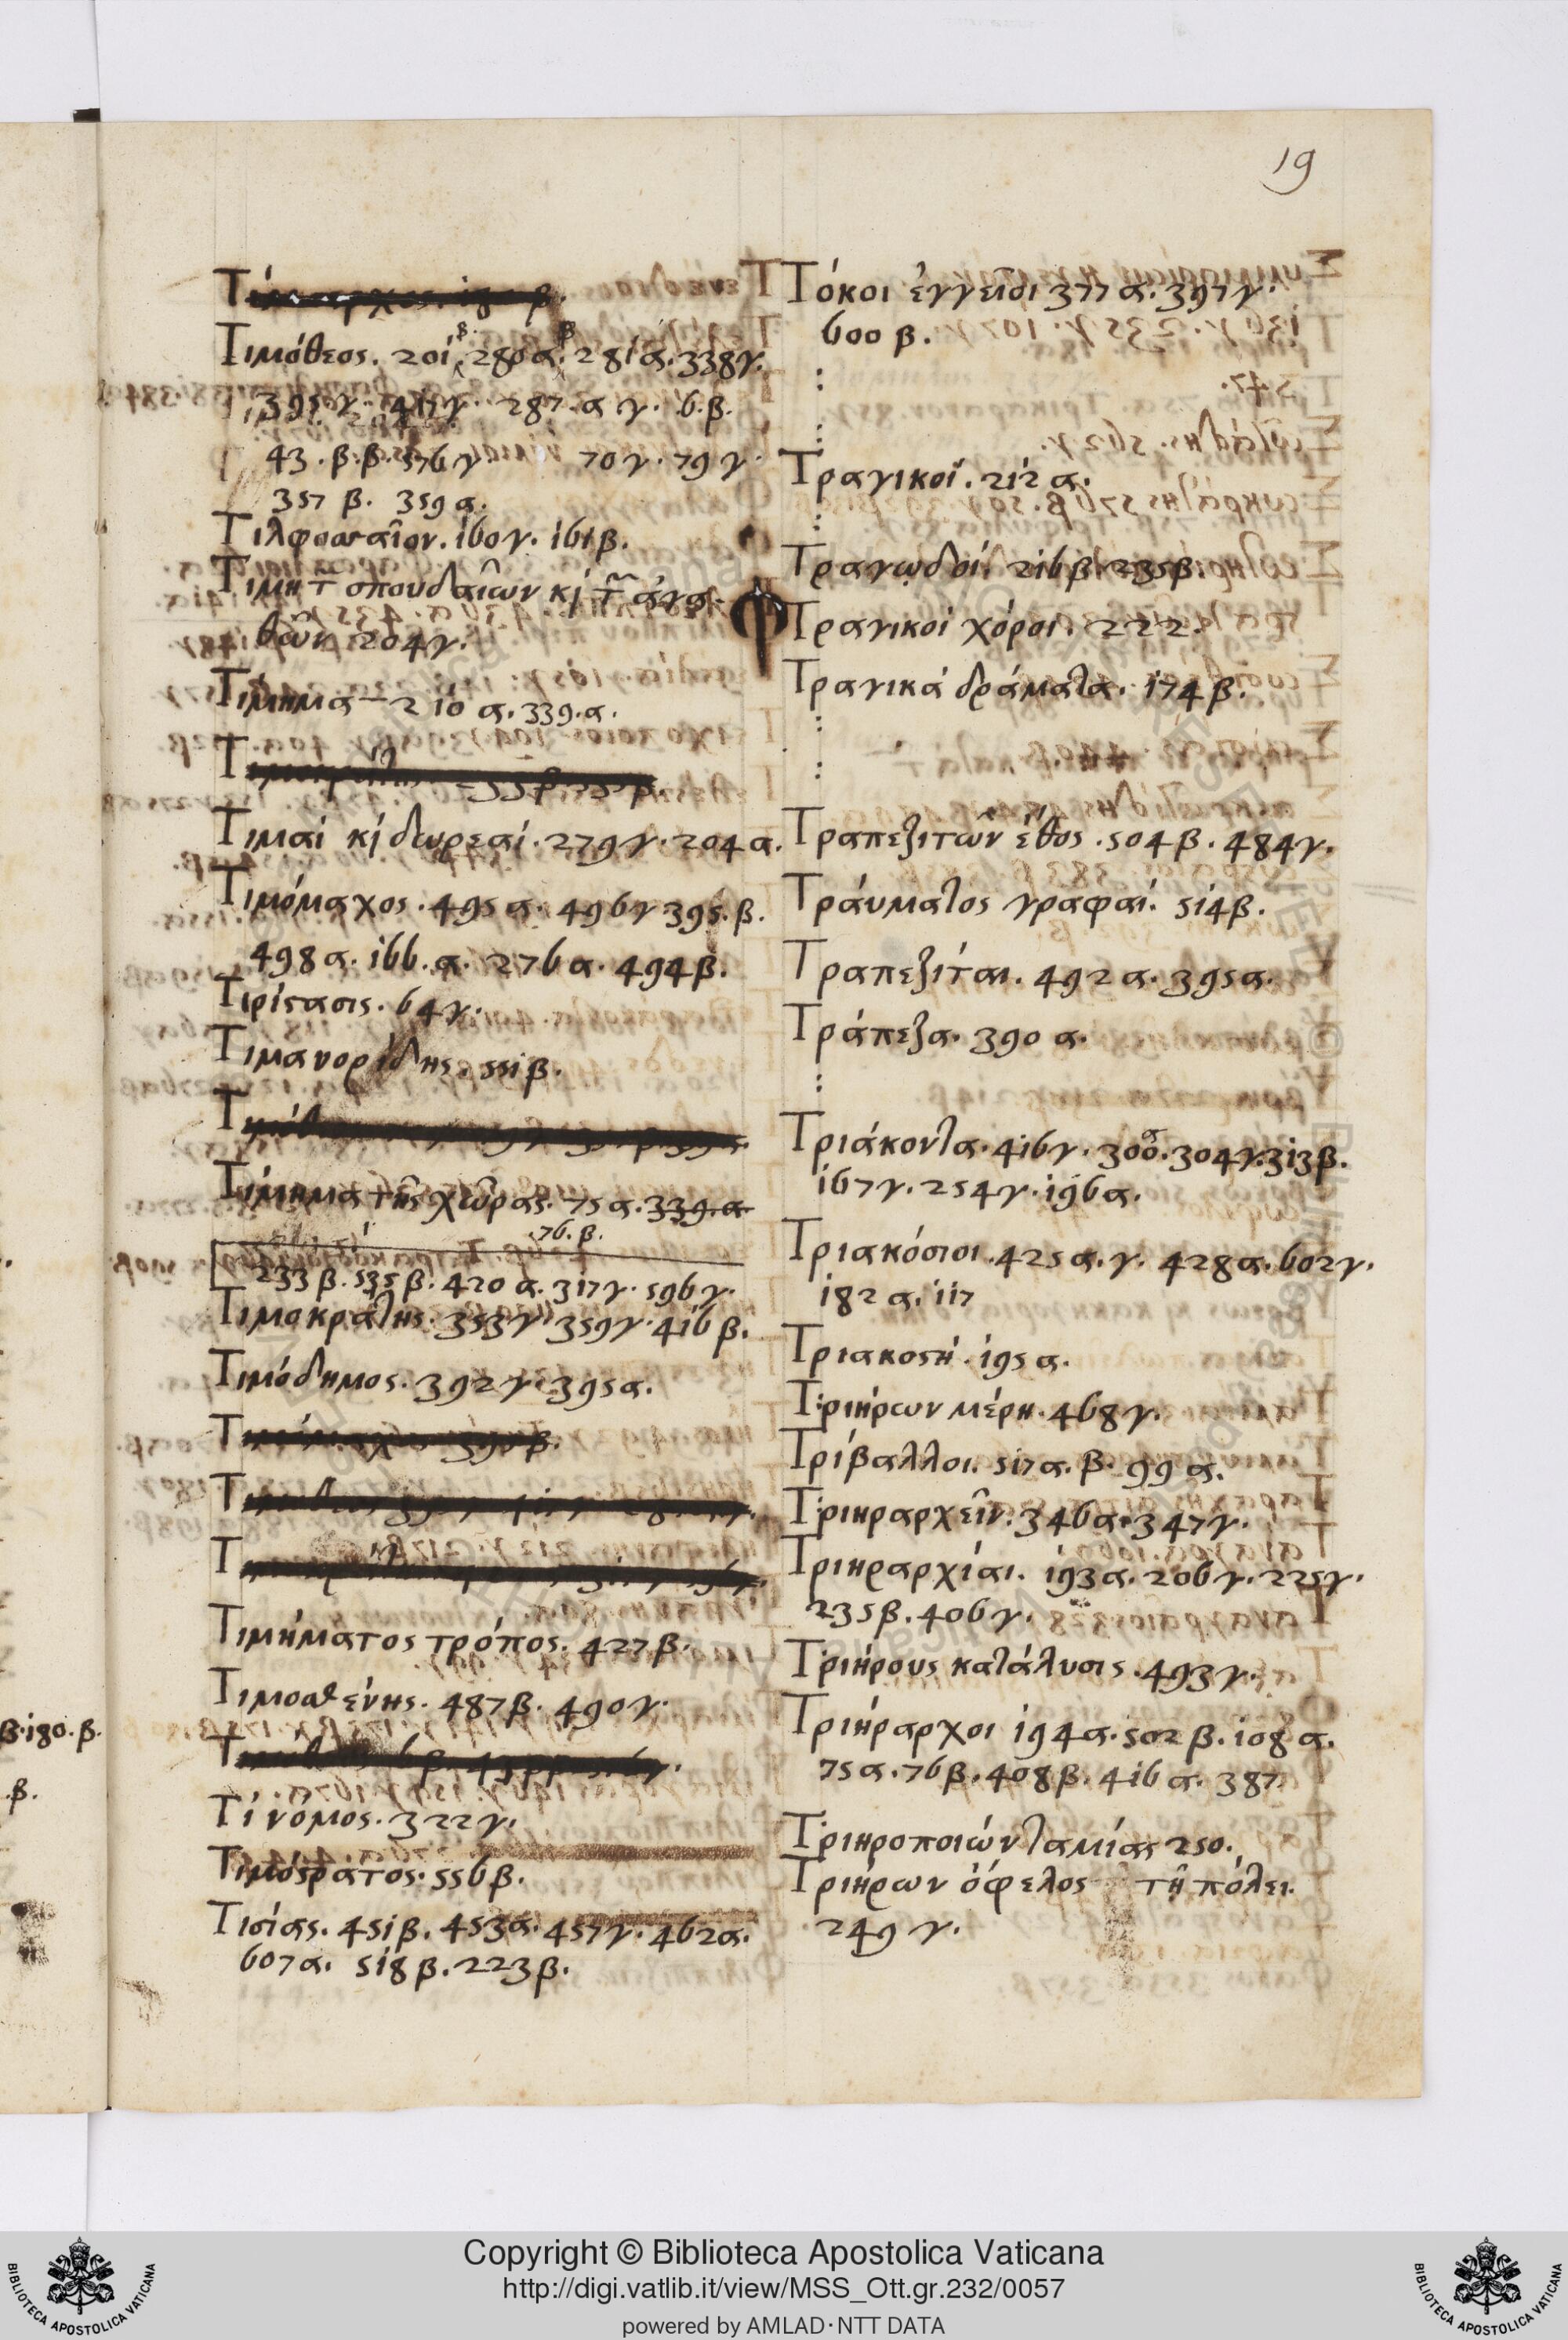 19
Τιμόθεος. 201 β. 280 α. β 281 α. 338 γ.
395 γ. 417 γ. 287. α γ. 6. β.
43. β. β. 576 γ 70 γ. 79 γ.
357 β. 359 α.
160 γ. 161 β.
Τιμὴ τ̄ σπουδαίων κ̀ τ̄ ἀγα-
θῶν 204 γ.
Τίμημα 210 α. 339. α.
Τιμαί κ̀ δωρεαί. 279 γ. 204 α.
Τιμόμαχος. 495 α. 496 γ 395. β.
498 α. 166. α. 276 α. 494 β.
Τιρίστασις. 64 γ.
Τιμανορίδης. 551 β.
Τίμημα τῆς χώρας. 75 α. 339. α
76. β.
233 β. 535 β. 420 α. 317 γ. 596 γ.
Τιμοκράτης. 353 γ 359 γ. 416 β.
Τιμόδημος. 392 γ. 395 α.
Τιμήματος τρόπος. 427 β.
Τιμοσθένης. 487 β. 490 γ.
Τί νόμος. 322 γ.
Τιμόστρατος. 556 β.
Τισίας. 451 β. 453 α. 457 γ. 462 α.
607 α. 518 β. 223 β.
Τόκοι ἐγγεῖοι 377 α. 397 γ.
600 β.
Τραγικοί. 212 α.
Τραγῳδοί. 216 β. 235 β.
Τραγικοί χόροι. 222.
Τραγικά δράματα. 174 β.
Τραπεζιτῶν ἔθος. 504 β. 484 γ.
Τραύματος γραφαί. 514 β.
Τραπεζίται. 492 α. 395 α.
Τράπεζα. 390 α.
Τριάκοντα. 416 γ. 300 α. 304 γ. 313 β.
167 γ. 254 γ. 196 α.
Τριακόσιοι. 425 α. γ. 428 α. 602 γ.
182 α. 117
Τριακοστή. 195 α.
Τριήρων μέρη. 468 γ.
Τρίβαλλοι. 517 α. β. 99 α.
Τριηραρχεῖν. 346 α. 347 γ.
Τριηραρχίαι. 193 α. 206 γ. 225 γ.
235 β. 406 γ.
Τριήρους κατάλυσις. 493 γ.
Τριήραρχοι 194 α. 502 β. 108 α.
75 α. 76 β. 408 β. 416 α. 387.
Τριηροποιών ταμίας 250.
Τριήρων ὄφελος τῇ πόλει.
249 γ.
β. 180. β.
β.
Copyright © Biblioteca Apostolica Vaticana
http://digi.vatlib.it/view/MSS_Ott.gr.232/0057
powered by AMLAD·NTT DATA
BIBLIOTECA APOSTOLICA VATICANA
BIBLIOTECA APOSTOLICA VATICANA